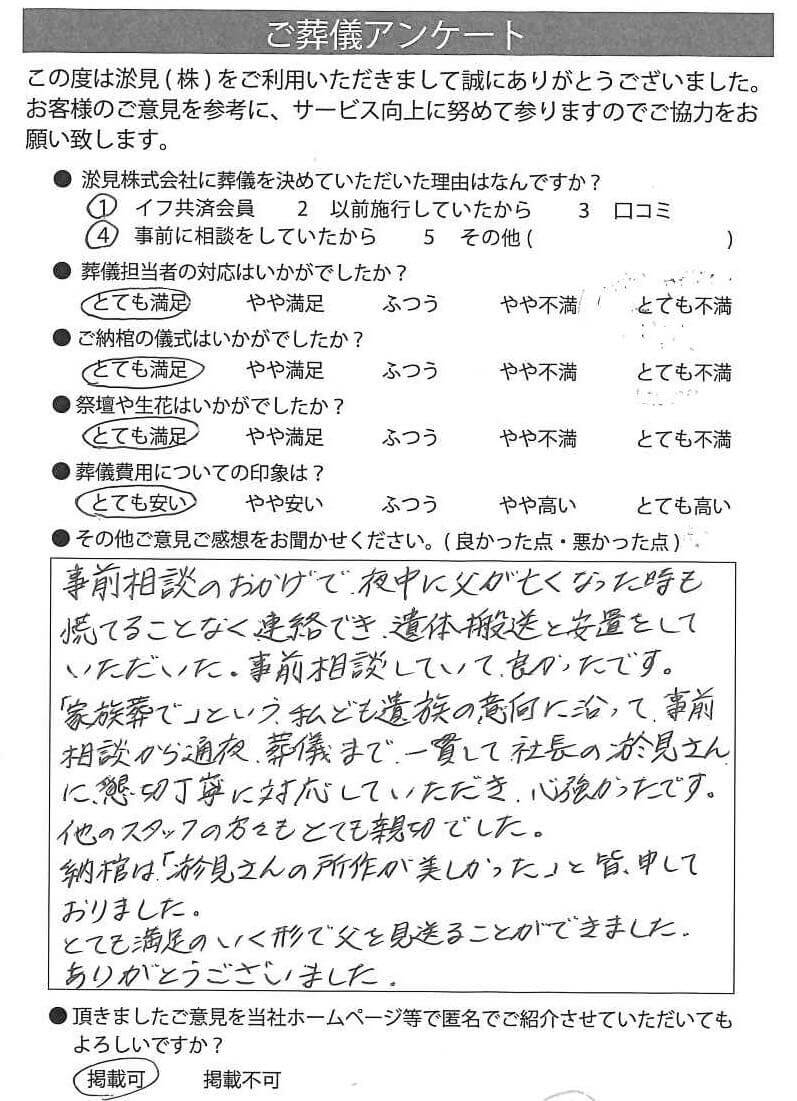 ご葬儀アンケート
この度は淤見(株)をご利用いただきまして誠にありがとうございました。
お客様のご意見を参考に、サービス向上に努めて参りますのでご協力をお
願い致します。
● 淤見株式会社に葬儀を決めていただいた理由はなんですか？
1 イフ共済会員 2 以前施行していたから 3 口コミ
4 事前に相談をしていたから 5 その他( )
● 葬儀担当者の対応はいかがでしたか？
とても満足 やや満足 ふつう やや不満 とても不満
● ご納棺の儀式はいかがでしたか？
とても満足 やや満足 ふつう やや不満 とても不満
● 祭壇や生花はいかがでしたか？
とても満足 やや満足 ふつう やや不満 とても不満
● 葬儀費用についての印象は？
とても安い やや安い ふつう やや高い とても高い
● その他ご意見ご感想をお聞かせください。(良かった点・悪かった点)
事前相談のおかげで、夜中に父が亡くなった時も
慌てることなく連絡でき、遺体搬送と安置をして
いただいた。事前相談していて、良かったです。
「家族葬で」という、私ども遺族の意向に沿って、事前
相談から通夜、葬儀まで、一貫して社長の淤見さん
に、懇切丁寧に対応していただき、心強かったです。
他のスタッフの方々もとても親切でした。
納棺は、「淤見さんの所作が美しかった」と皆、申して
おりました。
とても満足のいく形で父を見送ることができました。
ありがとうございました。
● 頂きましたご意見を当社ホームページ等で匿名でご紹介させていただいても
よろしいですか？
掲載可 掲載不可